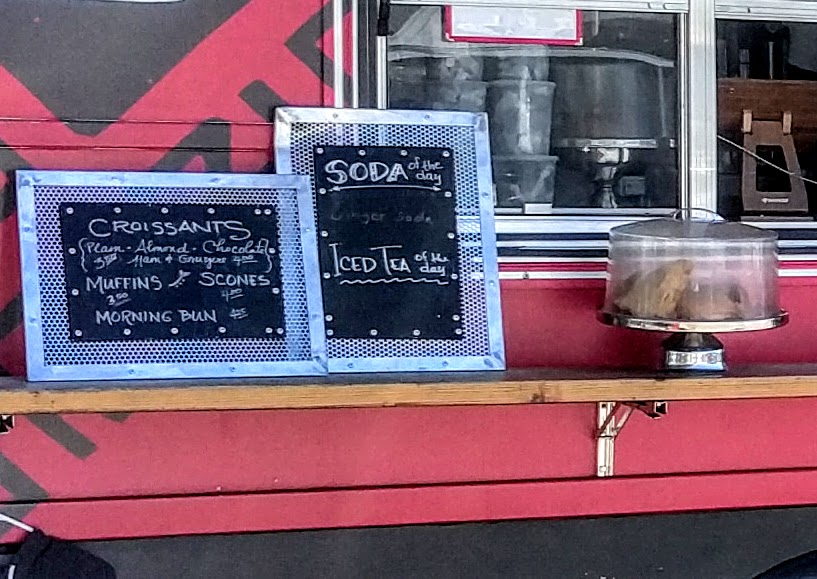 CROISSANTS
{Plain - Almond - Chocolate}
3.50 Ham & Gruyere 4.00
MUFFINS SCONES
3.00 4.00
MORNING BUN
SODA of the day
Ginger Soda
ICED TEA of the day